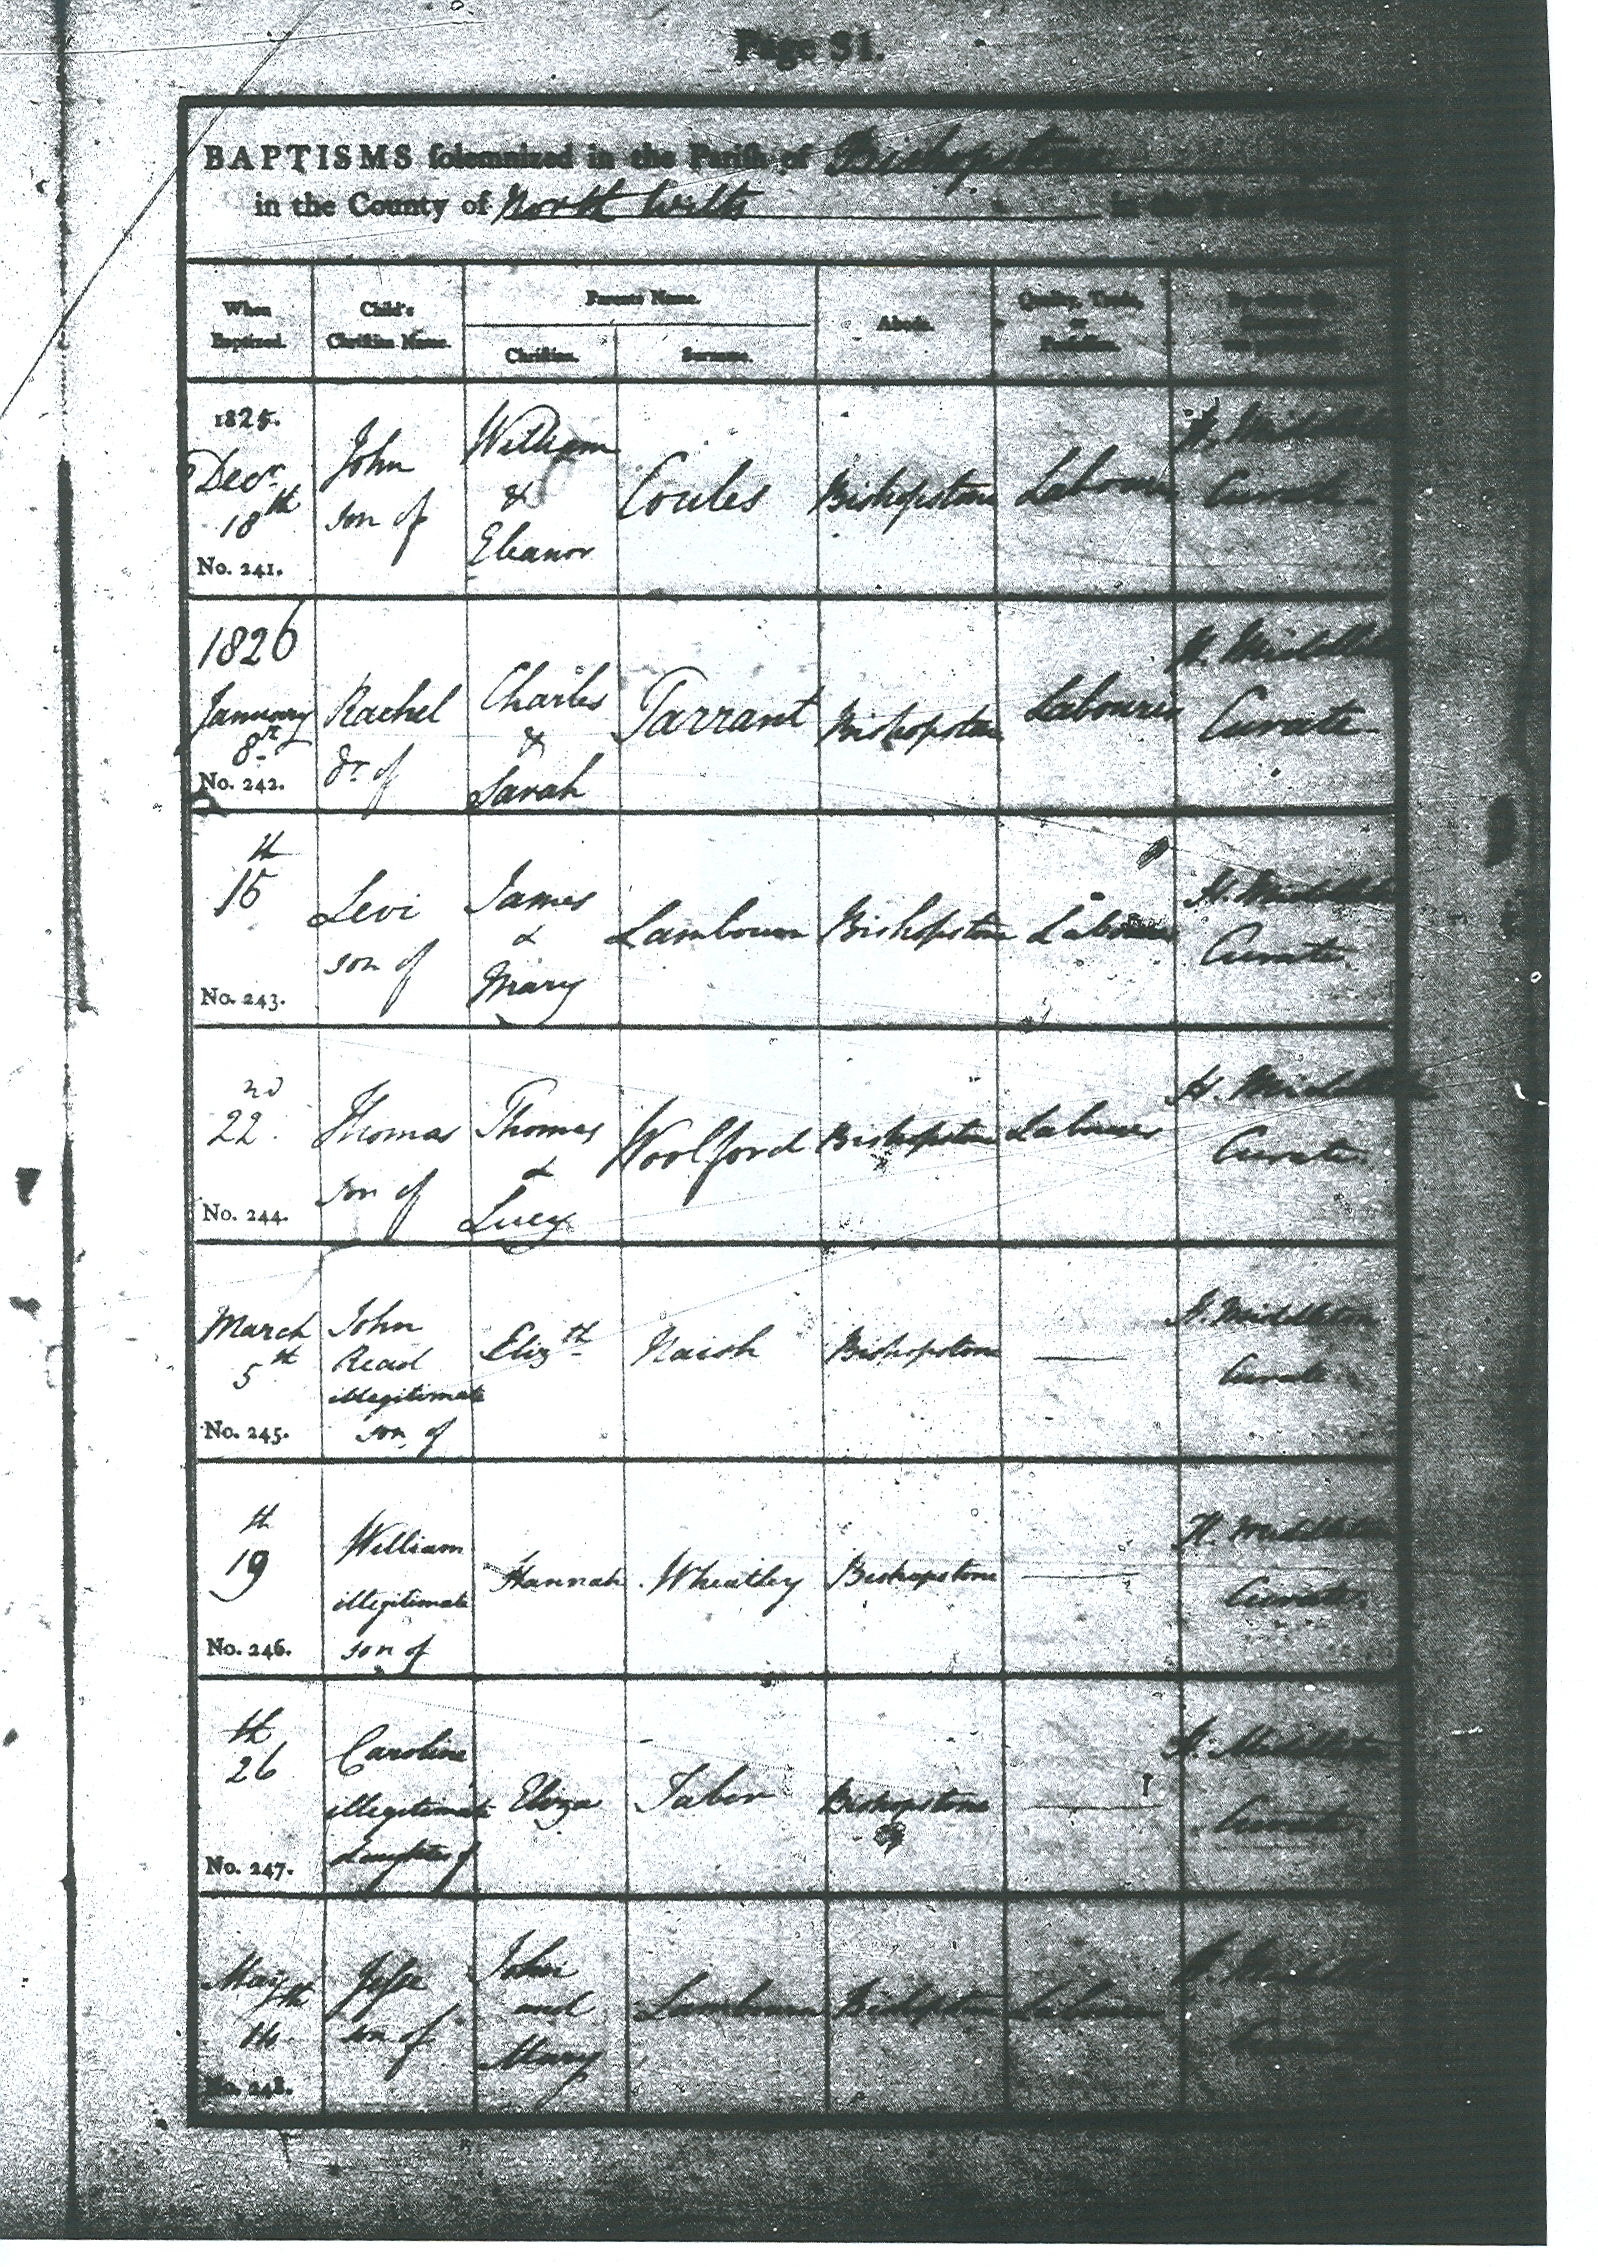 Page 31.
BAPTISMS solemnized in the Parish of Bishopstone
in the County of North Wilts in the Year
When Baptized.
Child's Christian Name.
Parents Name.
Christian.
Surname.
Abode.
Quality, Trade, or Profession.
By whom the Ceremony was performed.
1825.
Decr.
18th
No. 241.
John
son of
William
&
Eleanor
Coules
Bishopstone
Labourer
H. Middleton
Curate
1826
January
8th
No. 242.
Rachel
Dr of
Charles
&
Sarah
Tarrant
Bishopstone
Labourer
H. Middleton
Curate
th
15
No. 243.
Levi
son of
James
&
Mary
Lambourn
Bishopstone
Labourer
H. Middleton
Curate
nd
22.
No. 244.
Thomas
son of
Thomas
&
Lucy
Woolford
Bishopstone
Labourer
H. Middleton
Curate.
March
5th
No. 245.
John
Read
illegitimate
son of
Elizth
Naish
Bishopstone
H. Middleton
Curate
th
19
No. 246.
William
illegitimate
son of
Hannah
Wheatley
Bishopstone
H. Middleton
Curate.
th
26
No. 247.
Caroline
illegitimate
daughter of
Eliza
Bishopstone
H. Middleton
Curate.
May
th
14
No. 248.
Jesse
son of
John
and
Mary
Lambourn
Bishopstone
Labourer
H. Middleton
Curate